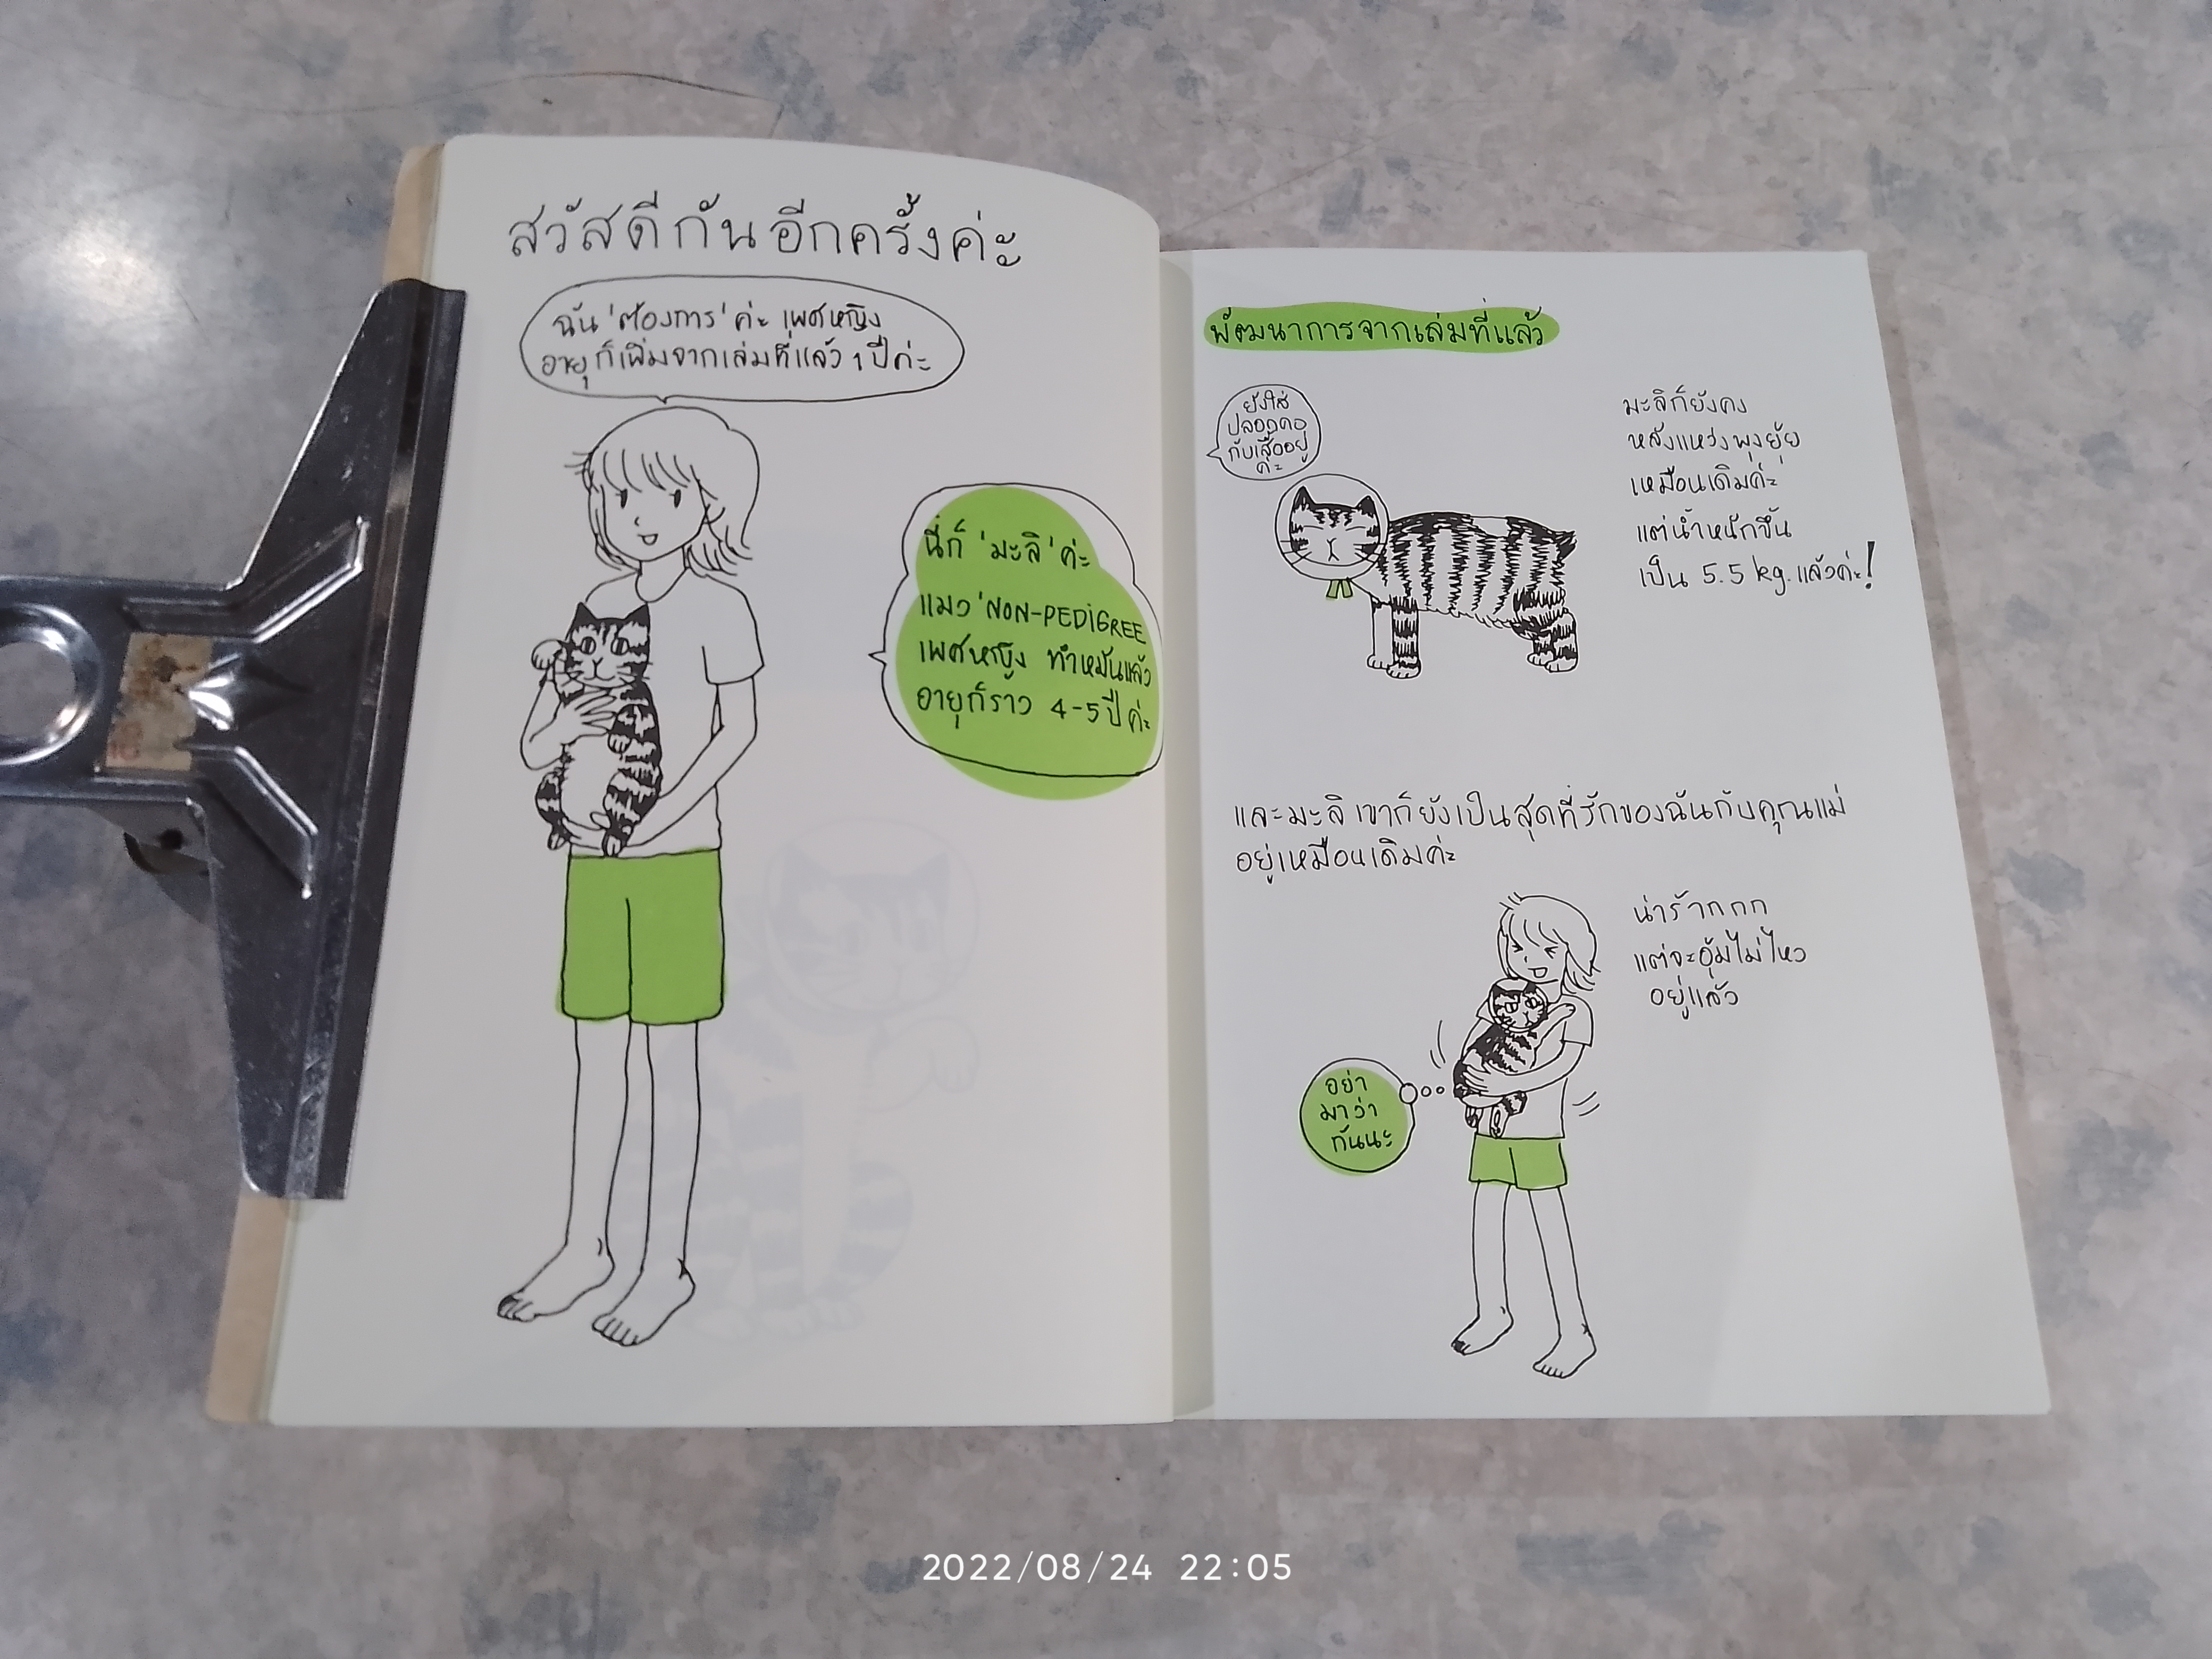 สวัสดีกันอีกครั้งค่ะ
ฉัน 'ต้องการ' ค่ะ เพศหญิง
อายุก็เพิ่มจากเล่มที่แล้ว 1 ปีค่ะ
นี่ก็ 'มะลิ' ค่ะ
แมว 'NON-PEDIGREE
เพศหญิง ทำหมันแล้ว
อายุก็ราว 4-5 ปีค่ะ
พัฒนาการจากเล่มที่แล้ว
ยังใส่
ปลอกคอ
กับเสื้ออยู่
ค่ะ
มะลิก็ยังคง
หลังแหว่งพุงยุ้ย
เหมือนเดิมค่ะ
แต่น้ำหนักขึ้น
เป็น 5.5 kg. แล้วค่ะ!
และมะลิ เขาก็ยังเป็นสุดที่รักของฉันกับคุณแม่
อยู่เหมือนเดิมค่ะ
น่าร้ากกก
แต่จะอุ้มไม่ไหว
อยู่แล้ว
อย่า
มาว่า
กันนะ
2022/08/24 22:05